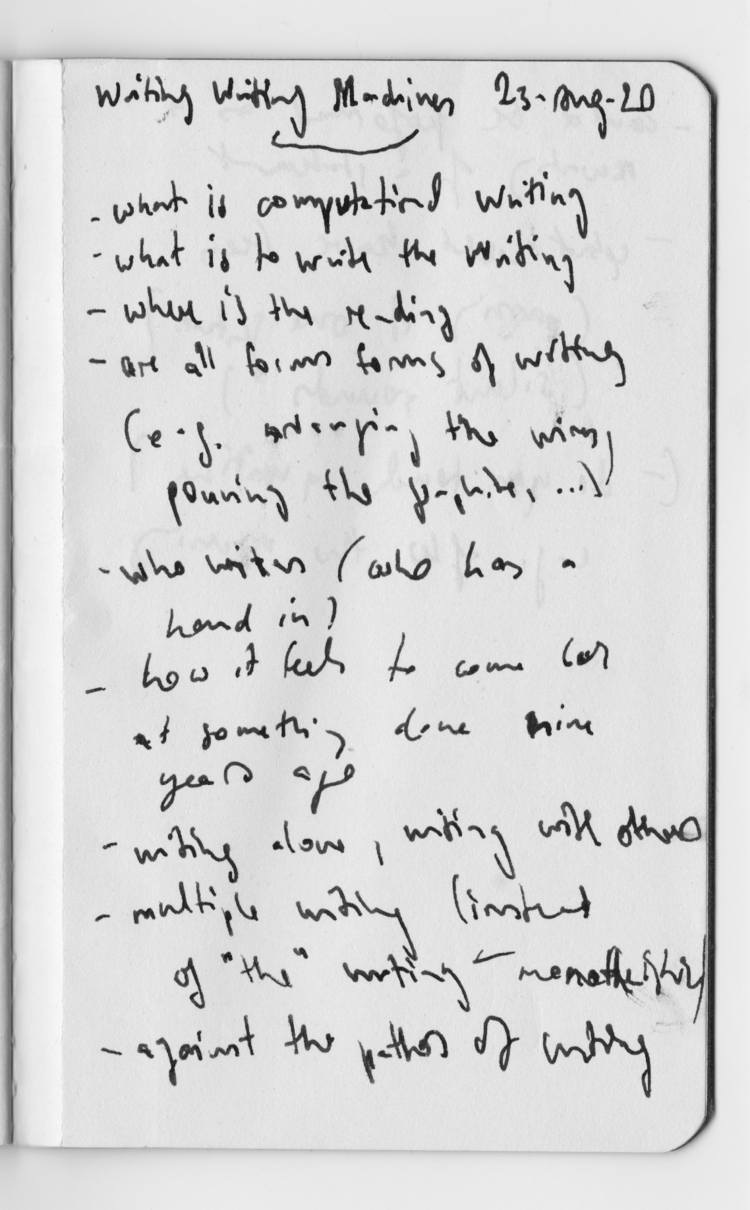 Writing Writing Machines 23-Aug-20
- what is computational writing
- what is to write the writing
- where is the reading
- are all forms forms of writing
(e.g. arranging the wires,
pouring the graphite, ...)
- who writes (who has a
hand in)
- how it feels to come
at something done nine
years ago
- writing alone, writing with others
- multiple writing (instead
of "the" writing - monotheistic)
- against the pathos of writing